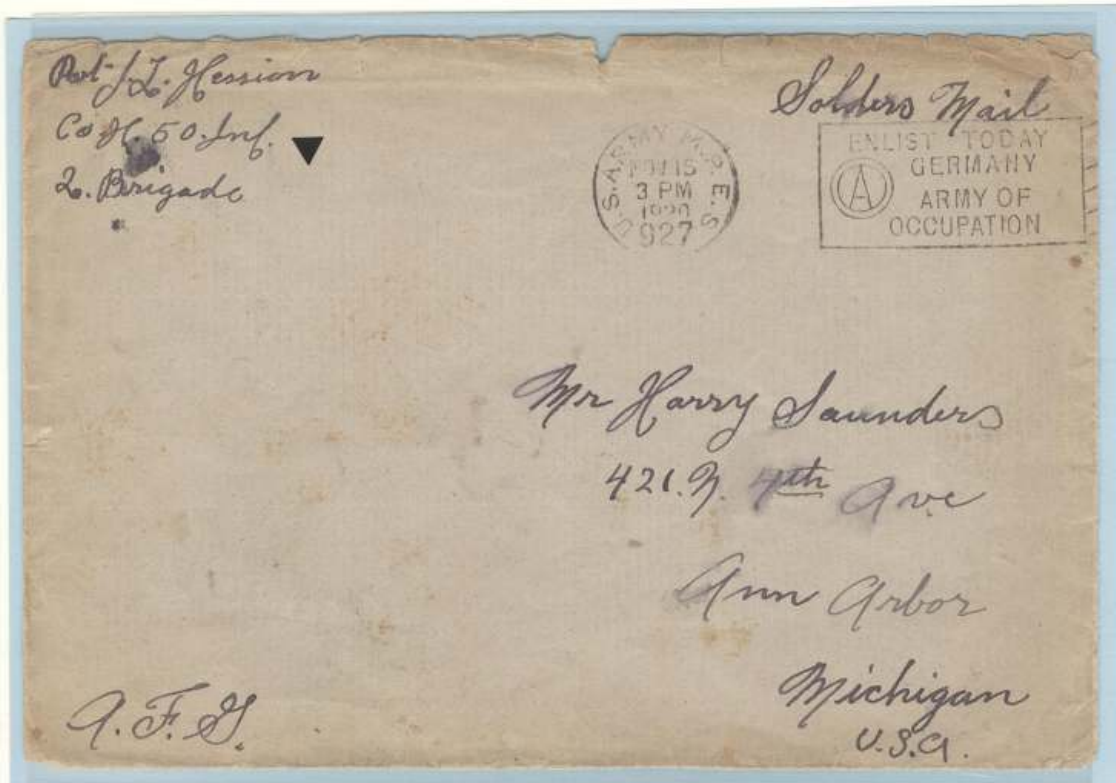 Pvt J. L. Hession
Co H. 50. Inf.
2. Brigade
Solders Mail
U.S. ARMY M.P.E.S.
NOV 15
3 PM
1920
927
ENLIST TODAY
GERMANY
A ARMY OF
OCCUPATION
Mr Harry Saunders
421. N. 4th Ave
Ann Arbor
Michigan
U.S.A.
A.F.G.